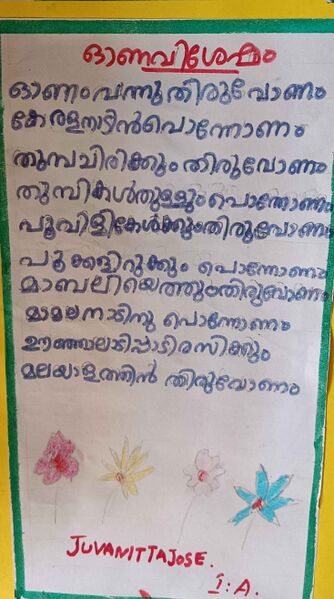 ഓണവിശേഷം
ഓണം വന്നു തിരുവോണം
കേരളനാട്ടിൻ പൊന്നോണം
തുമ്പചിരിക്കും തിരുവോണം
തുമ്പികൾതുള്ളും പൊന്നോണം
പൂവിളികേൾക്കും തിരുവോണം
പൂക്കളിറുക്കും പൊന്നോണം
മാബലിയെത്തും തിരുവോണം
മാമലനാടിനു പൊന്നോണം
ഊഞ്ഞാലാടിപ്പാടിരസിക്കും
മലയാളത്തിൻ തിരുവോണം
JUVANITTA JOSE.
I:A.